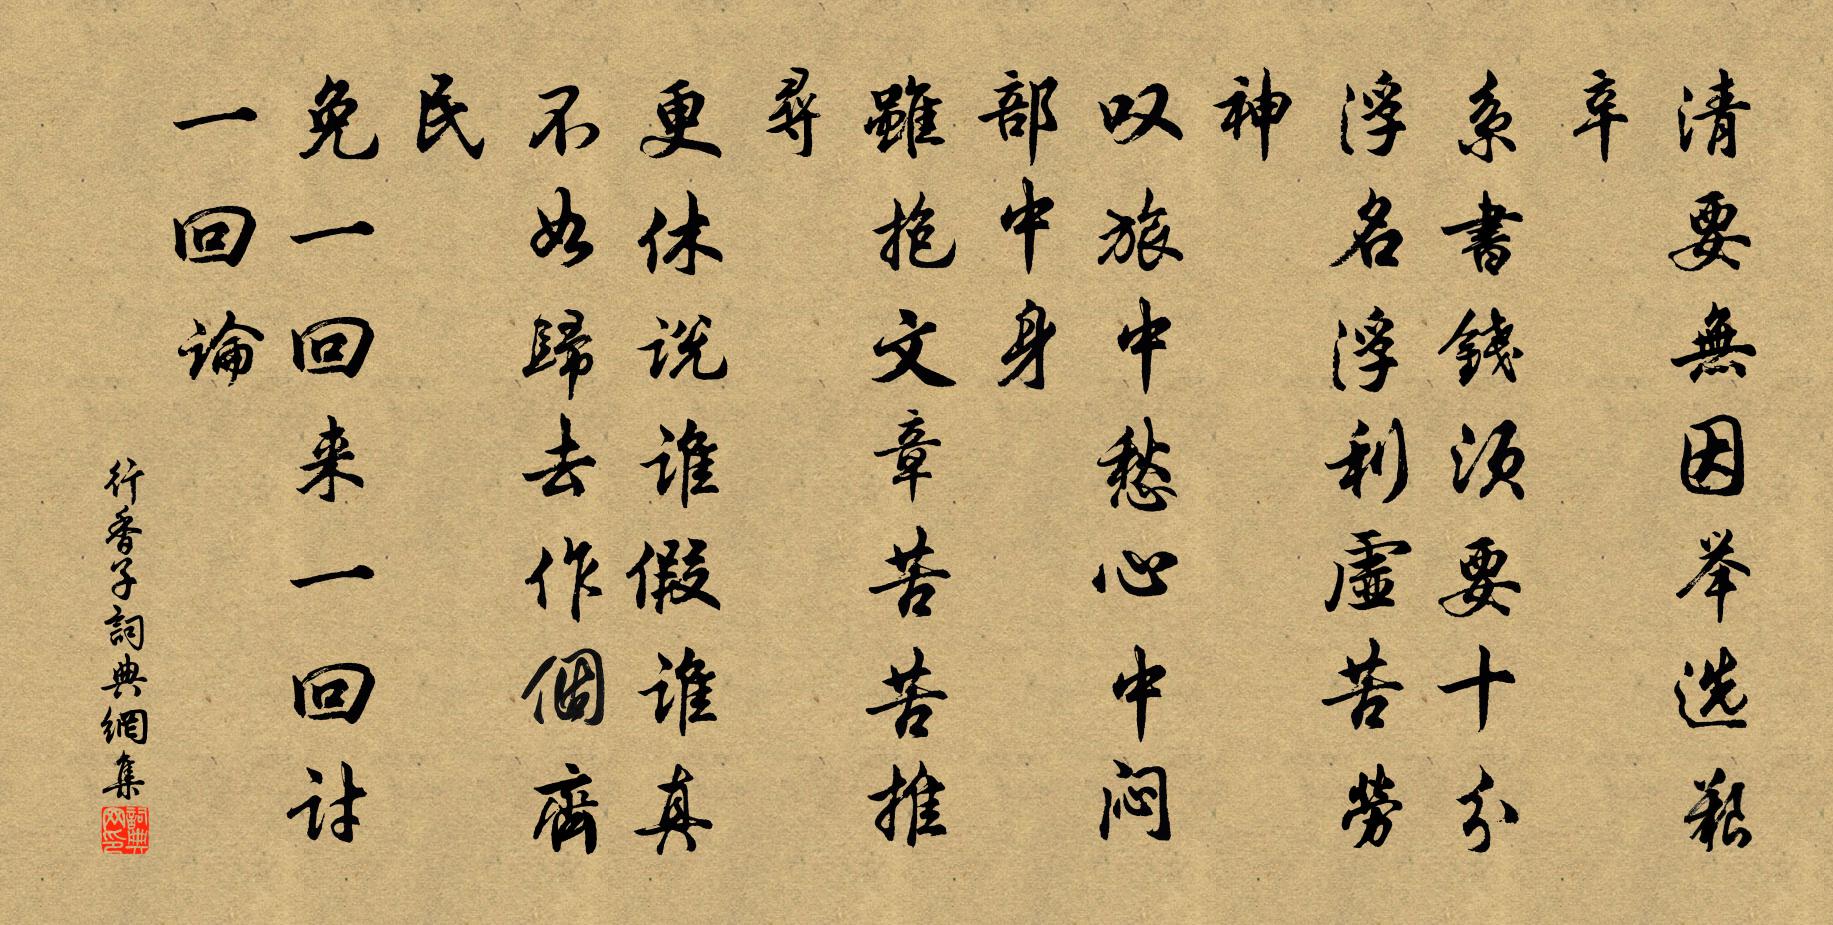 清要無因举选艰
辛
系書錢须要十分
浮名浮利虛苦勞
神
叹旅中愁心中闷
部中身
雖抱文章苦苦推
尋
更休说谁假谁真
不如歸去作個齊
民
免一回来一回讨
一回論
行香子詞典網集
詞典網印